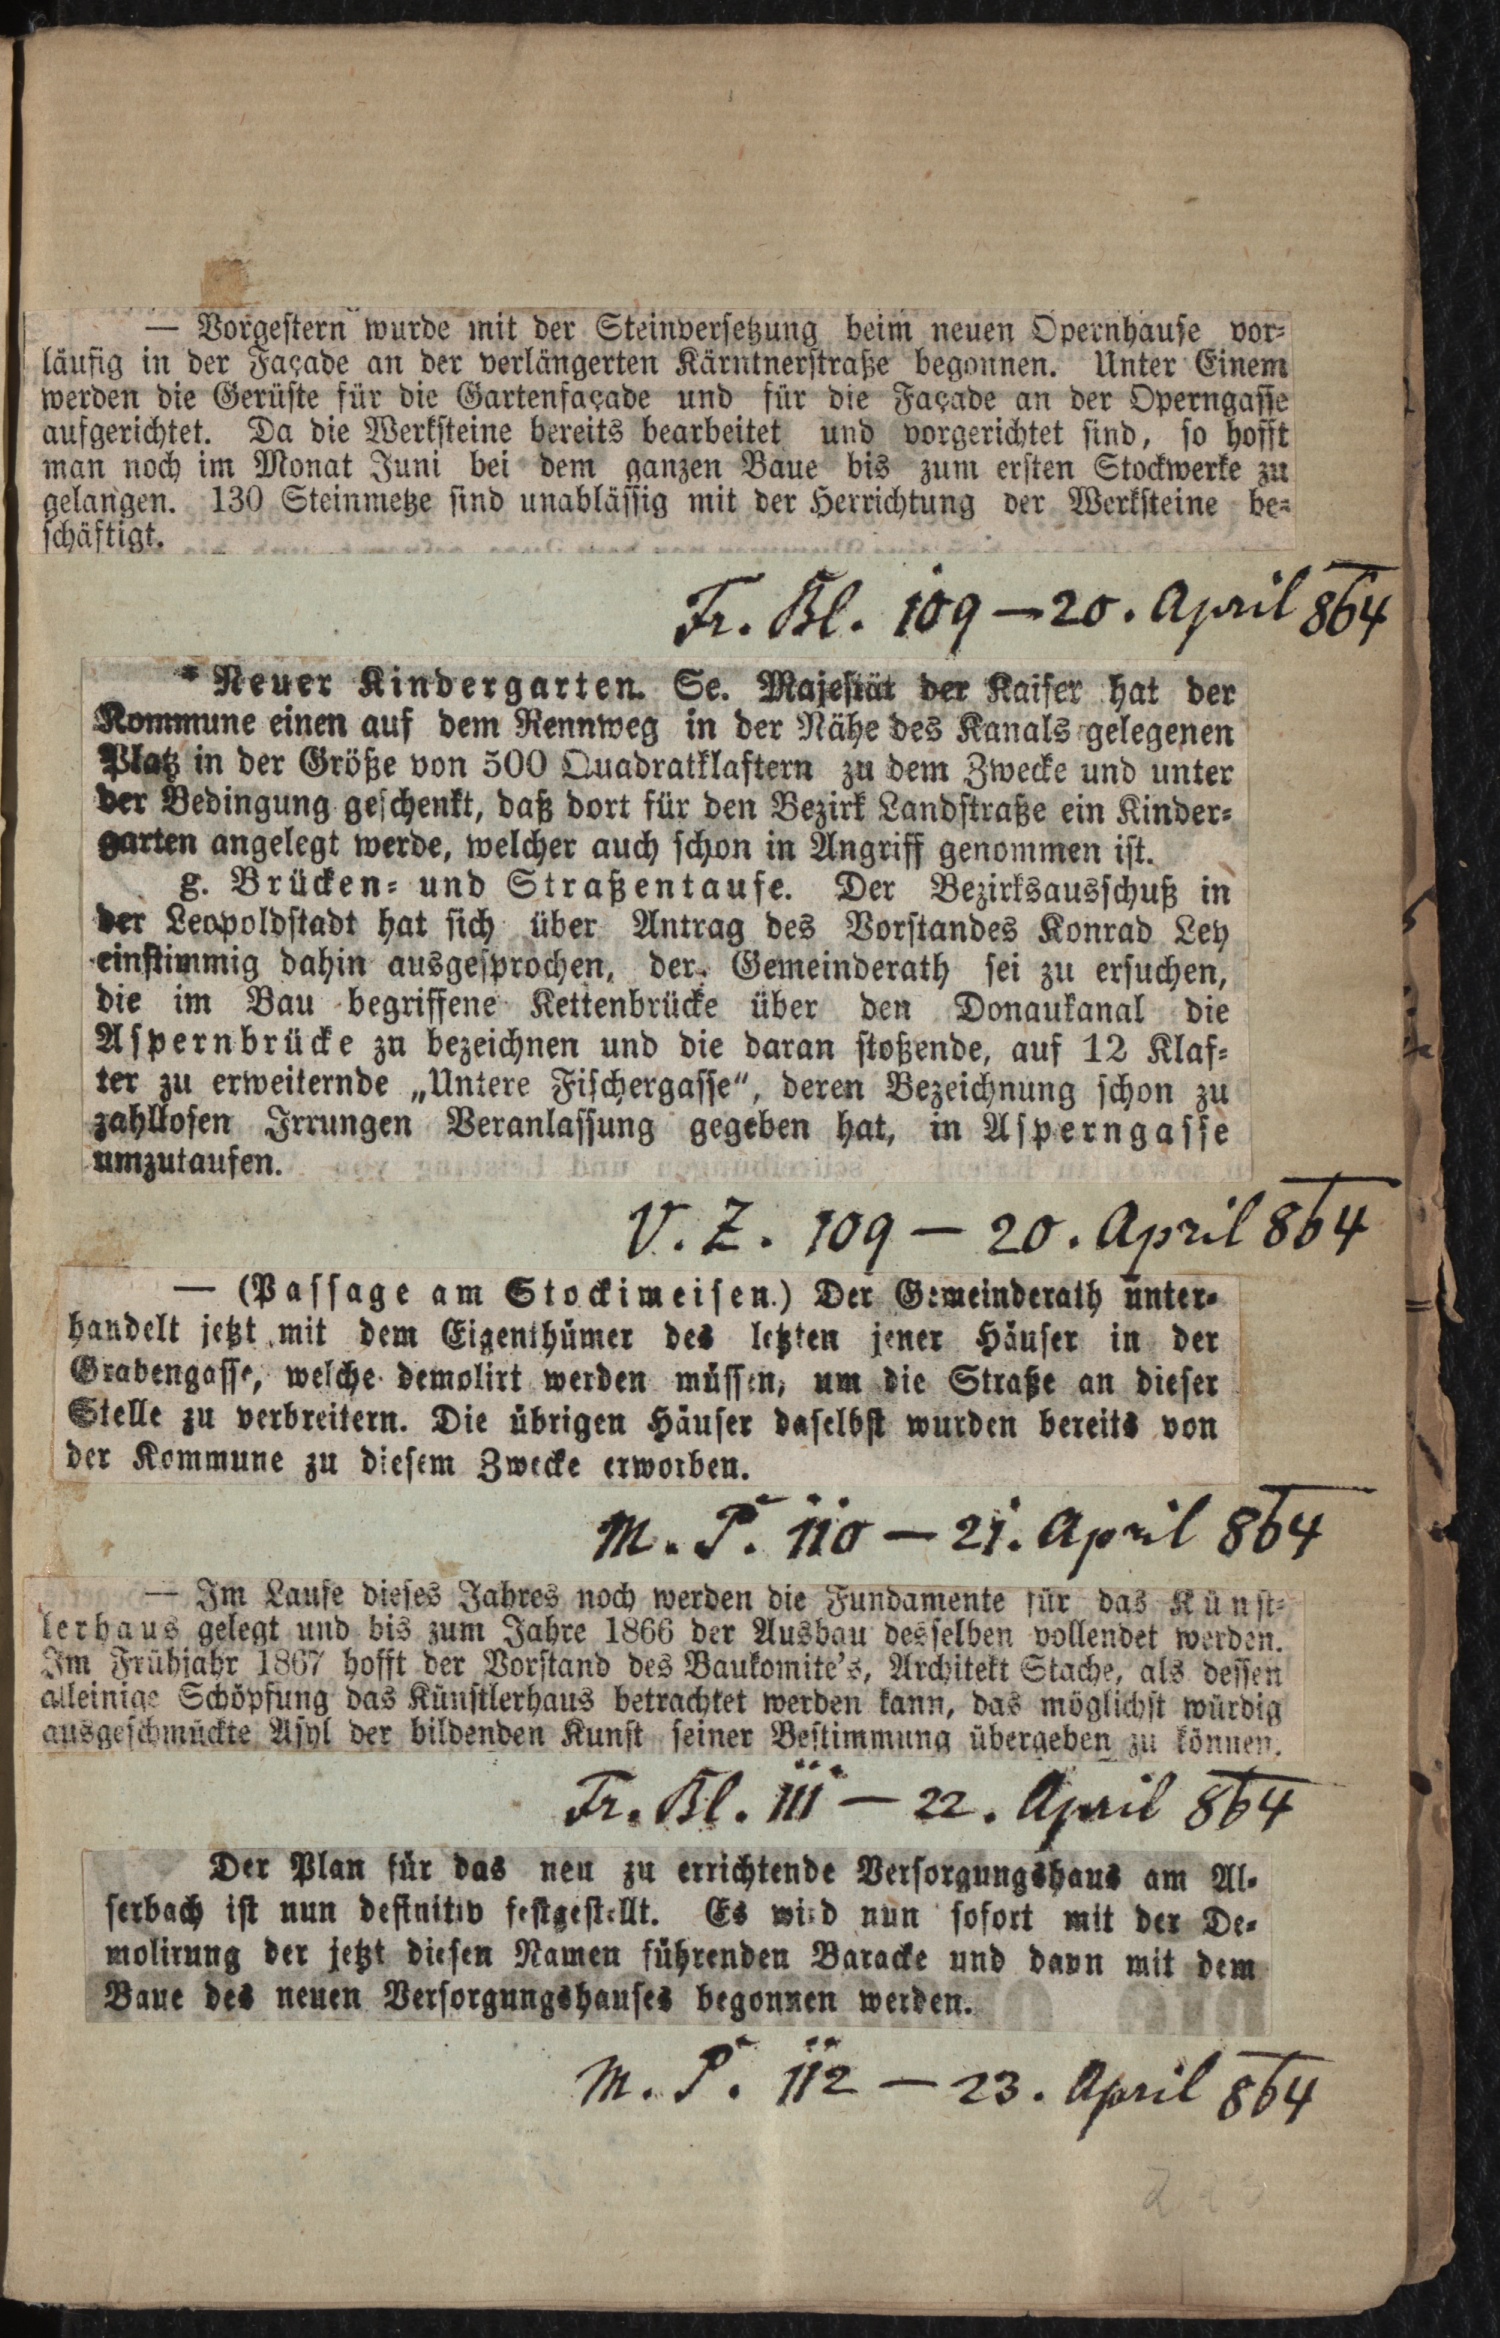 — Vorgestern wurde mit der Steinversetzung beim neuen Opernhause vor-
läufig in der Façade an der verlängerten Kärntnerstraße begonnen. Unter Einem
werden die Gerüste für die Gartenfaçade und für die Façade an der Operngasse
aufgerichtet. Da die Werksteine bereits bearbeitet und vorgerichtet sind, so hofft
man noch im Monat Juni bei dem ganzen Baue bis zum ersten Stockwerke zu
gelangen. 130 Steinmetze sind unablässig mit der Herrichtung der Werksteine be-
schäftigt.
Fr. Bl. 109 — 20. April 864
* Neuer Kindergarten. Se. Majestät der Kaiser hat der
Kommune einen auf dem Rennweg in der Nähe des Kanals gelegenen
Platz in der Größe von 500 Quadratklaftern zu dem Zwecke und unter
der Bedingung geschenkt, daß dort für den Bezirk Landstraße ein Kinder-
garten angelegt werde, welcher auch schon in Angriff genommen ist.
g. Brücken- und Straßentaufe. Der Bezirksausschuß in
der Leopoldstadt hat sich über Antrag des Vorstandes Konrad Ley
einstimmig dahin ausgesprochen, der Gemeinderath sei zu ersuchen,
die im Bau begriffene Kettenbrücke über den Donaukanal die
Aspernbrücke zu bezeichnen und die daran stoßende, auf 12 Klaf-
ter zu erweiternde „Untere Fischergasse“, deren Bezeichnung schon zu
zahllosen Irrungen Veranlassung gegeben hat, in Asperngasse
umzutaufen.
V. Z. 109 — 20. April 864
— (Passage am Stockimeisen.) Der Gemeinderath unter-
handelt jetzt mit dem Eigenthümer des letzten jener Häuser in der
Grabengasse, welche demolirt werden müssen, um die Straße an dieser
Stelle zu verbreitern. Die übrigen Häuser daselbst wurden bereits von
der Kommune zu diesem Zwecke erworben.
M. P. 110 — 21. April 864
— Im Laufe dieses Jahres noch werden die Fundamente für das Künst-
lerhaus gelegt und bis zum Jahre 1866 der Ausbau desselben vollendet werden.
Im Frühjahr 1867 hofft der Vorstand des Baukomite's, Architekt Stache, als dessen
alleinige Schöpfung das Künstlerhaus betrachtet werden kann, das möglichst würdig
ausgeschmückte Asyl der bildenden Kunst seiner Bestimmung übergeben zu können.
Fr. Bl. 111 — 22. April 864
Der Plan für das neu zu errichtende Versorgungshaus am Al-
serbach ist nun definitiv festgestellt. Es wird nun sofort mit der De-
molirung der jetzt diesen Namen führenden Baracke und dann mit dem
Baue des neuen Versorgungshauses begonnen werden.
M. P. 112 — 23. April 864